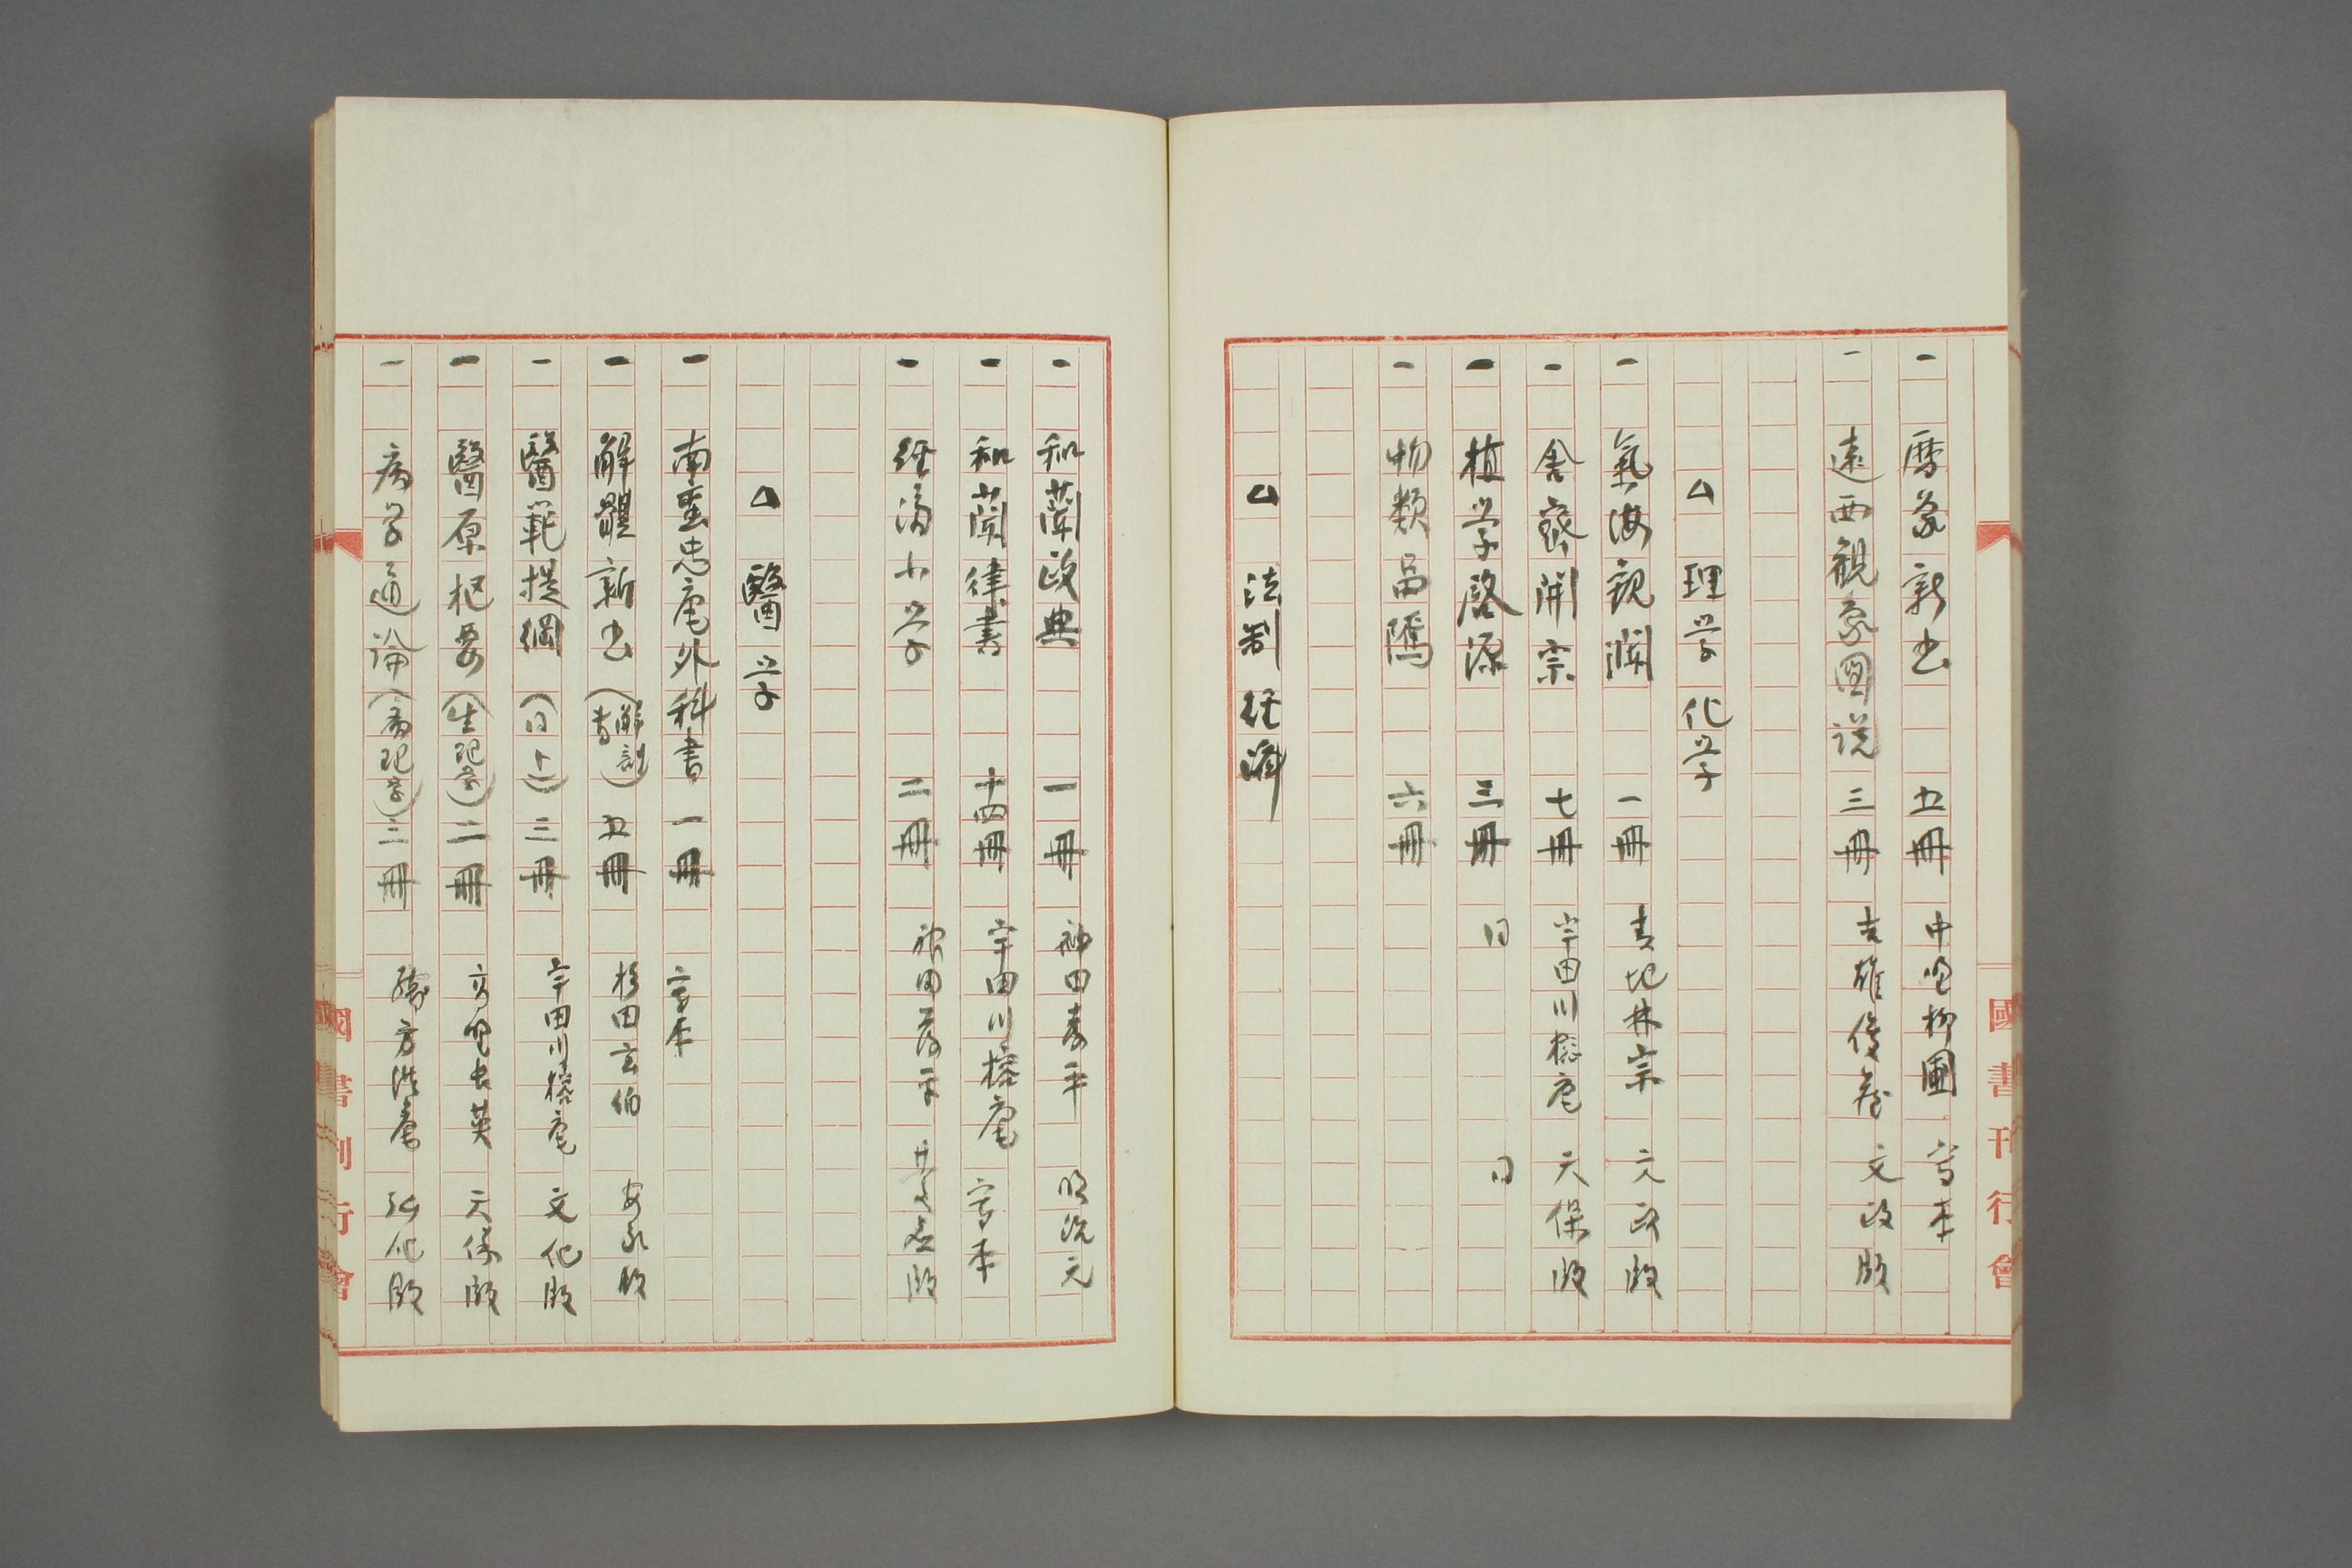 一 暦象新書 五冊 中野柳圃 写本
一 遠西観象図説 三冊 吉雄俊蔵 文政版
△ 理学 化学
一 氣海観瀾 一冊 青地林宗 文政版
一 舎密開宗 七冊 宇田川榕庵 天保版
一 植学啓源 三冊 同 同
一 物類品隲 六冊
△ 法制 経済
國書刊行會
一 和蘭政典 一冊 神田孝平 明治元
一 和蘭律書 十四冊 宇田川榕庵 写本
一 経済小学 二冊 神田孝平 慶応版
△ 醫学
一 南蛮忠庵外科書 一冊 写本
一 解體新書(解剖書) 五冊 杉田玄伯 安永版
一 醫範提綱(同上) 三冊 宇田川榕庵 文化版
一 醫原枢要(生理学) 二冊 高野長英 天保版
一 病学通論(病理学) 三冊 緒方洪庵 弘化版
國書刊行會